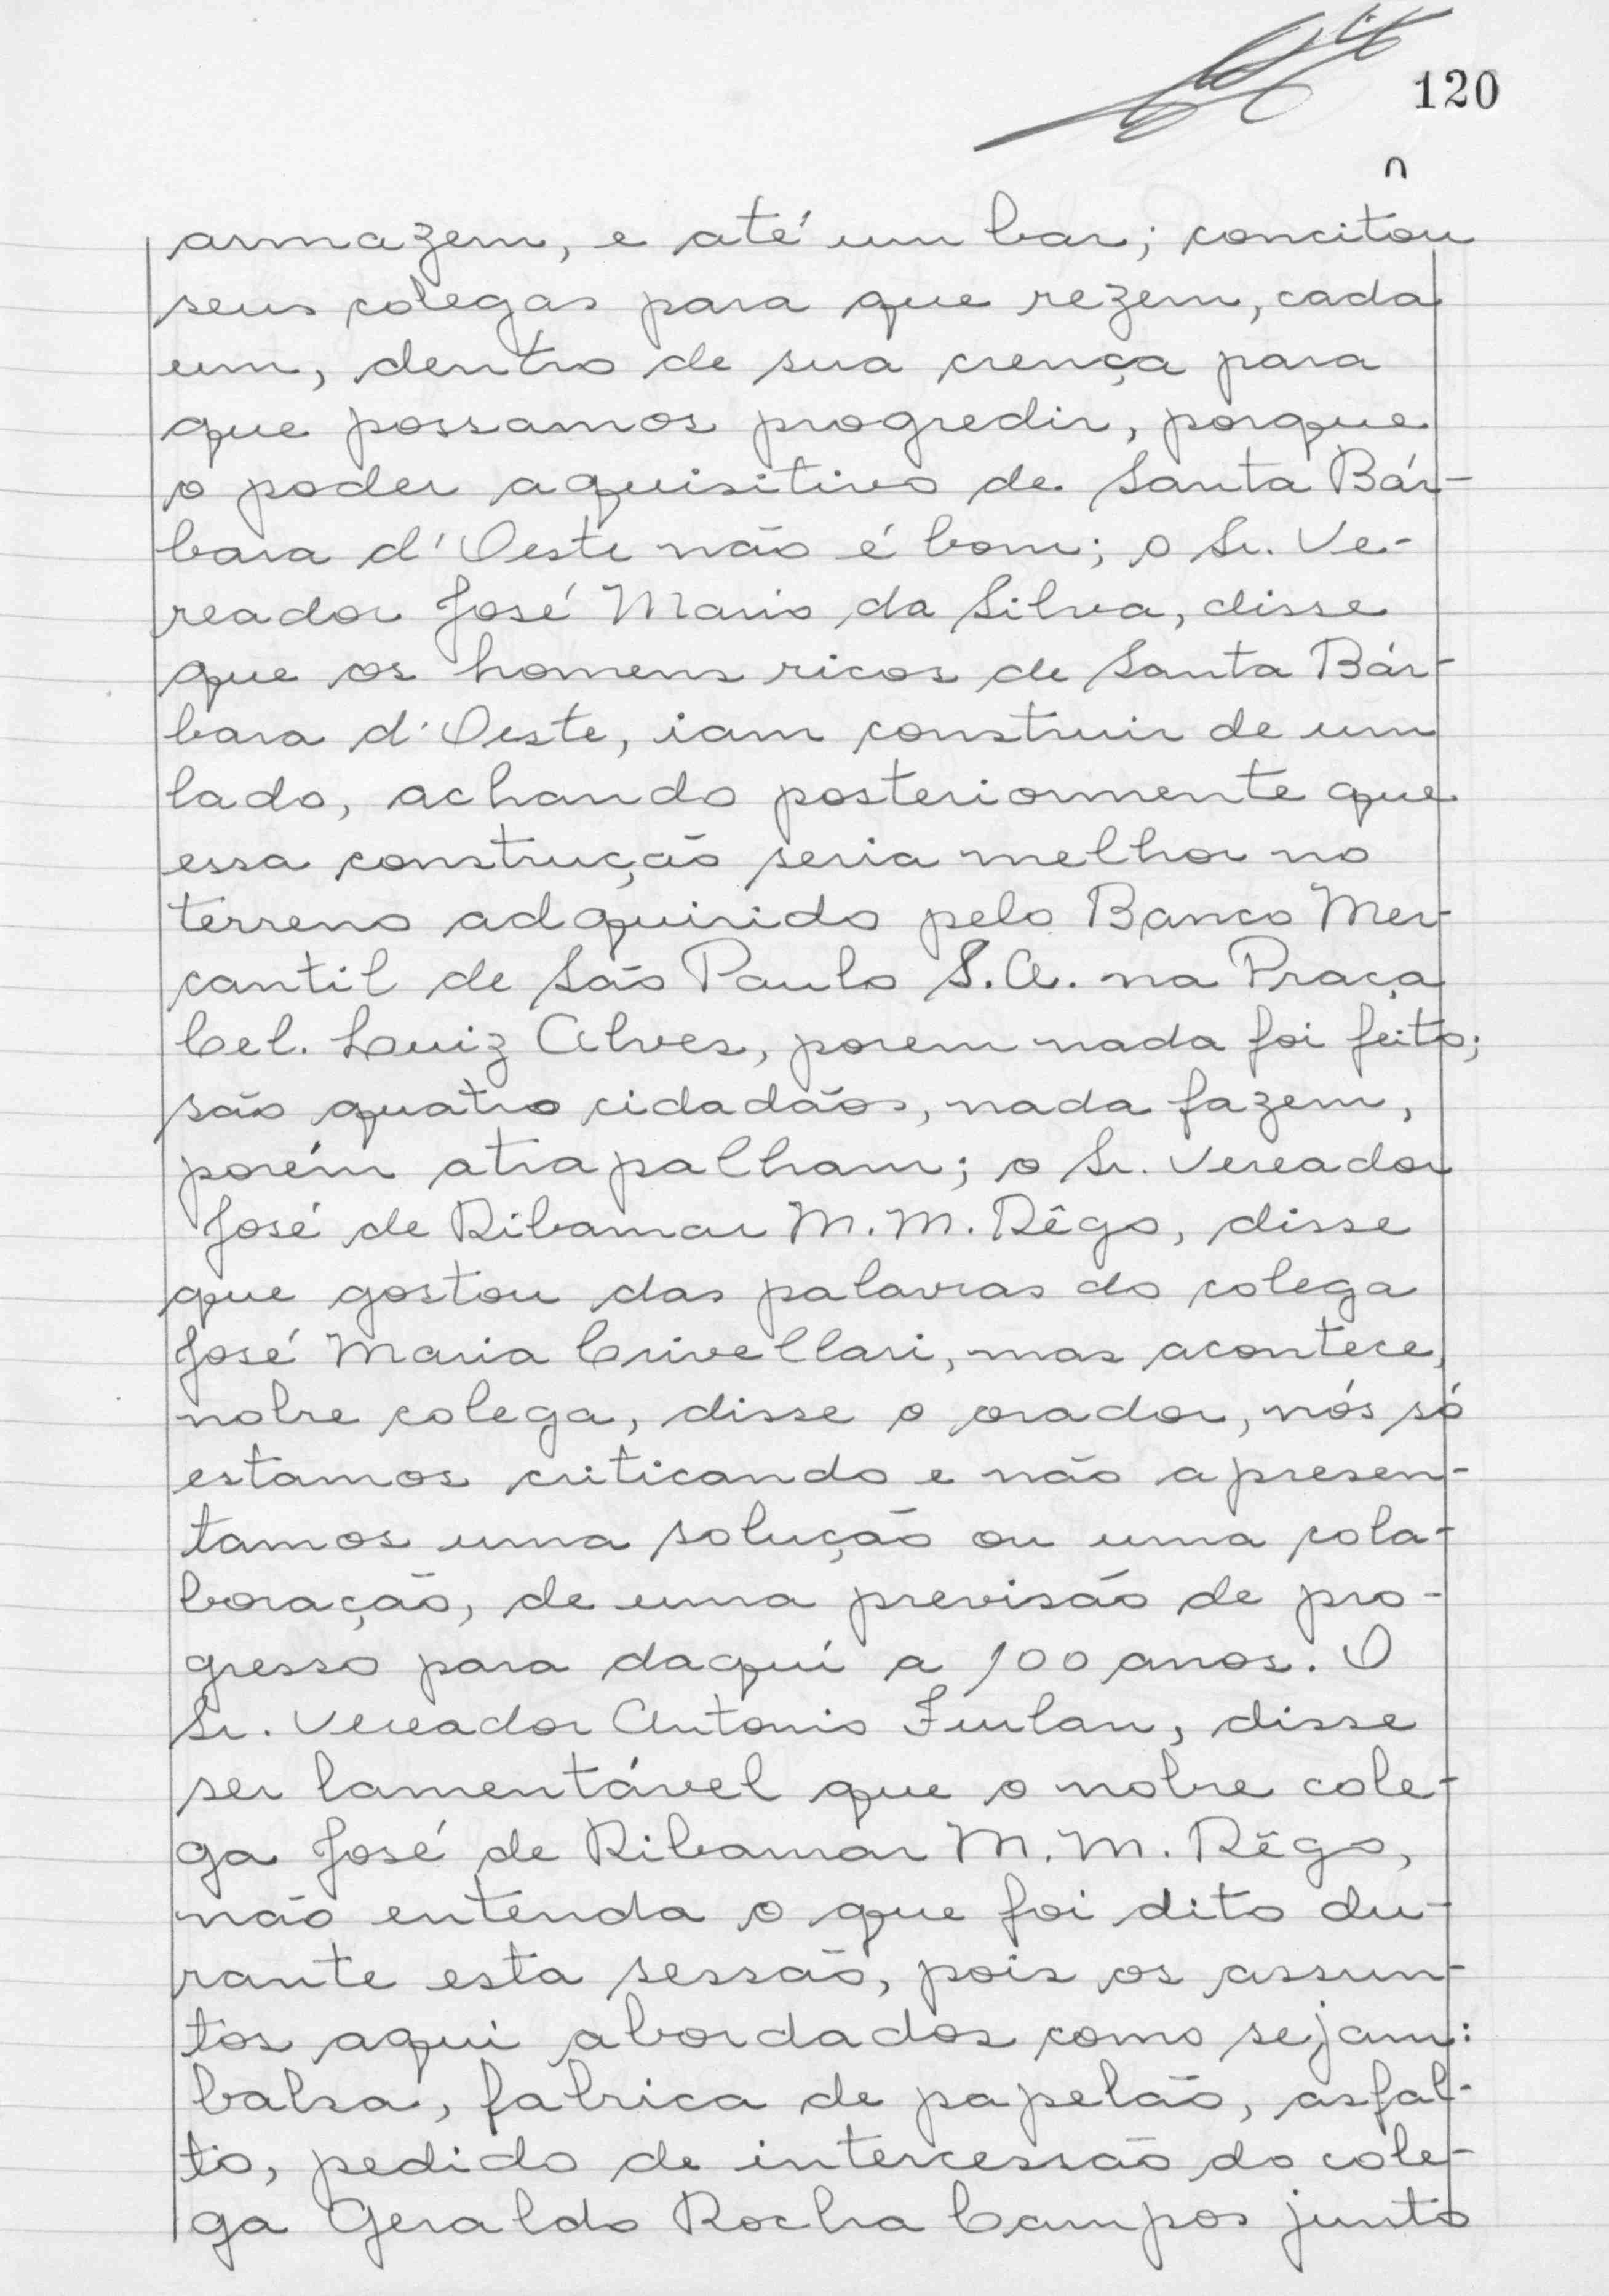 120
armazem, e até um bar; concitou
seus colegas para que rezem, cada
um, dentro de sua crença para
que possamos progredir, porque
o poder aquisitivo de Santa Bár-
bara d'Oeste não é bom; o Sr. Ve-
reador José Mario da Silva, disse
que os homens ricos de Santa Bár-
bara d'Oeste, iam construir de um
lado, achando posteriormente que
essa construção seria melhor no
terreno adquirido pelo Banco Mer-
cantil de São Paulo S.A. na Praça
Cel. Luiz Alves, porem nada foi feito;
são quatro cidadãos, nada fazem,
porém atrapalham; o Sr. Vereador
José de Ribamar M. M. Rêgo, disse
que gostou das palavras do colega
José Maria Crivellari, mas acontece,
nobre colega, disse o orador, nós só
estamos criticando e não apresen-
tamos uma solução ou uma cola-
boração, de uma previsão de pro-
gresso para daqui a 100 anos. O
Sr. Vereador Antonio Furlan, disse
ser lamentável que o nobre cole-
ga José de Ribamar M. M. Rêgo,
não entenda o que foi dito du-
rante esta sessão, pois os assun-
tos aqui abordados como sejam:
balsa, fabrica de papelão, asfal-
to, pedido de intercessão do cole-
ga Geraldo Rocha Campos junto